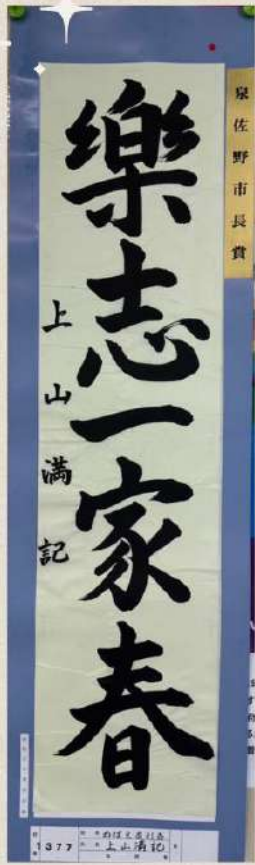 泉佐野市長賞
樂志一家春
上山満記
1377
上山満記